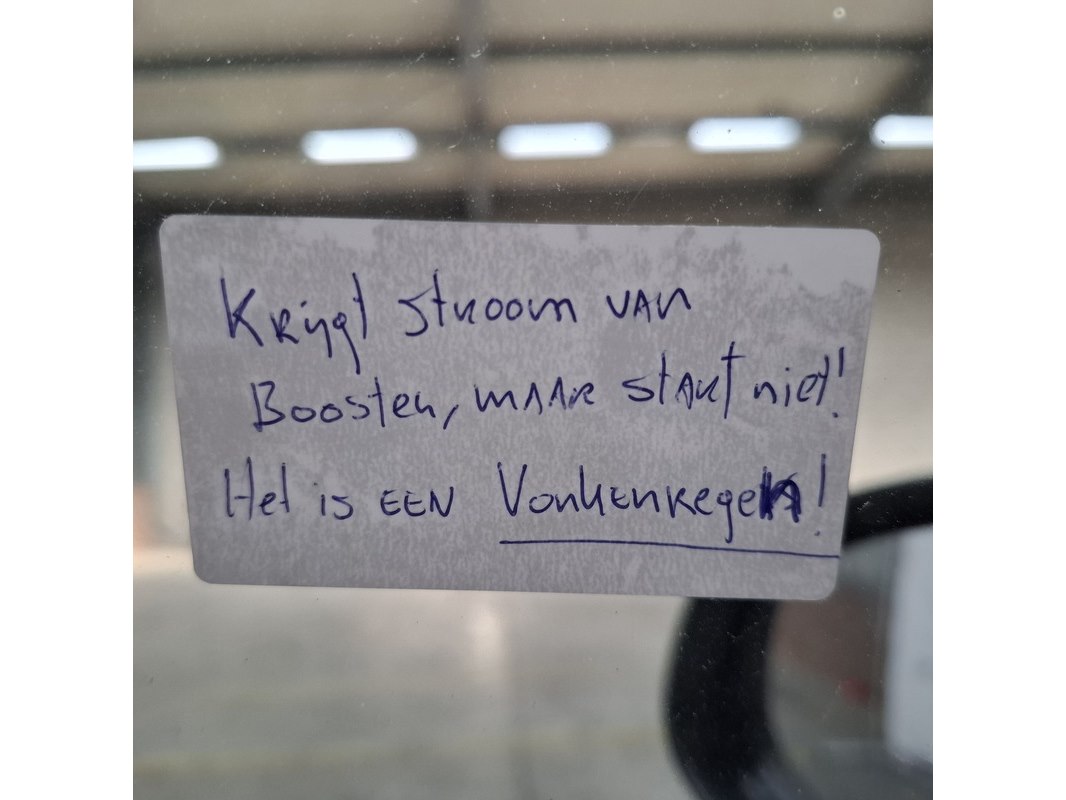 Krijgt stroom van
Booster, maar start niet!
Het is EEN Vonkenregen!